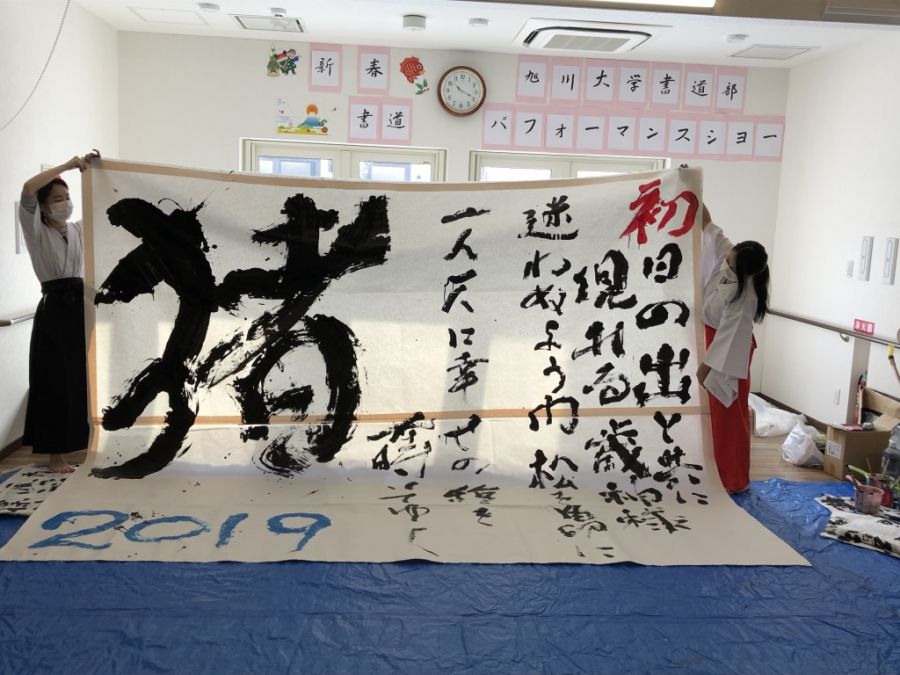 新春
書道
旭川大学書道部
パフォーマンスショー
初日の出と共に
現れる歳神様
迷わぬよう門松を
一人々に幸せの種を
てゆく
猪
2019
消火器